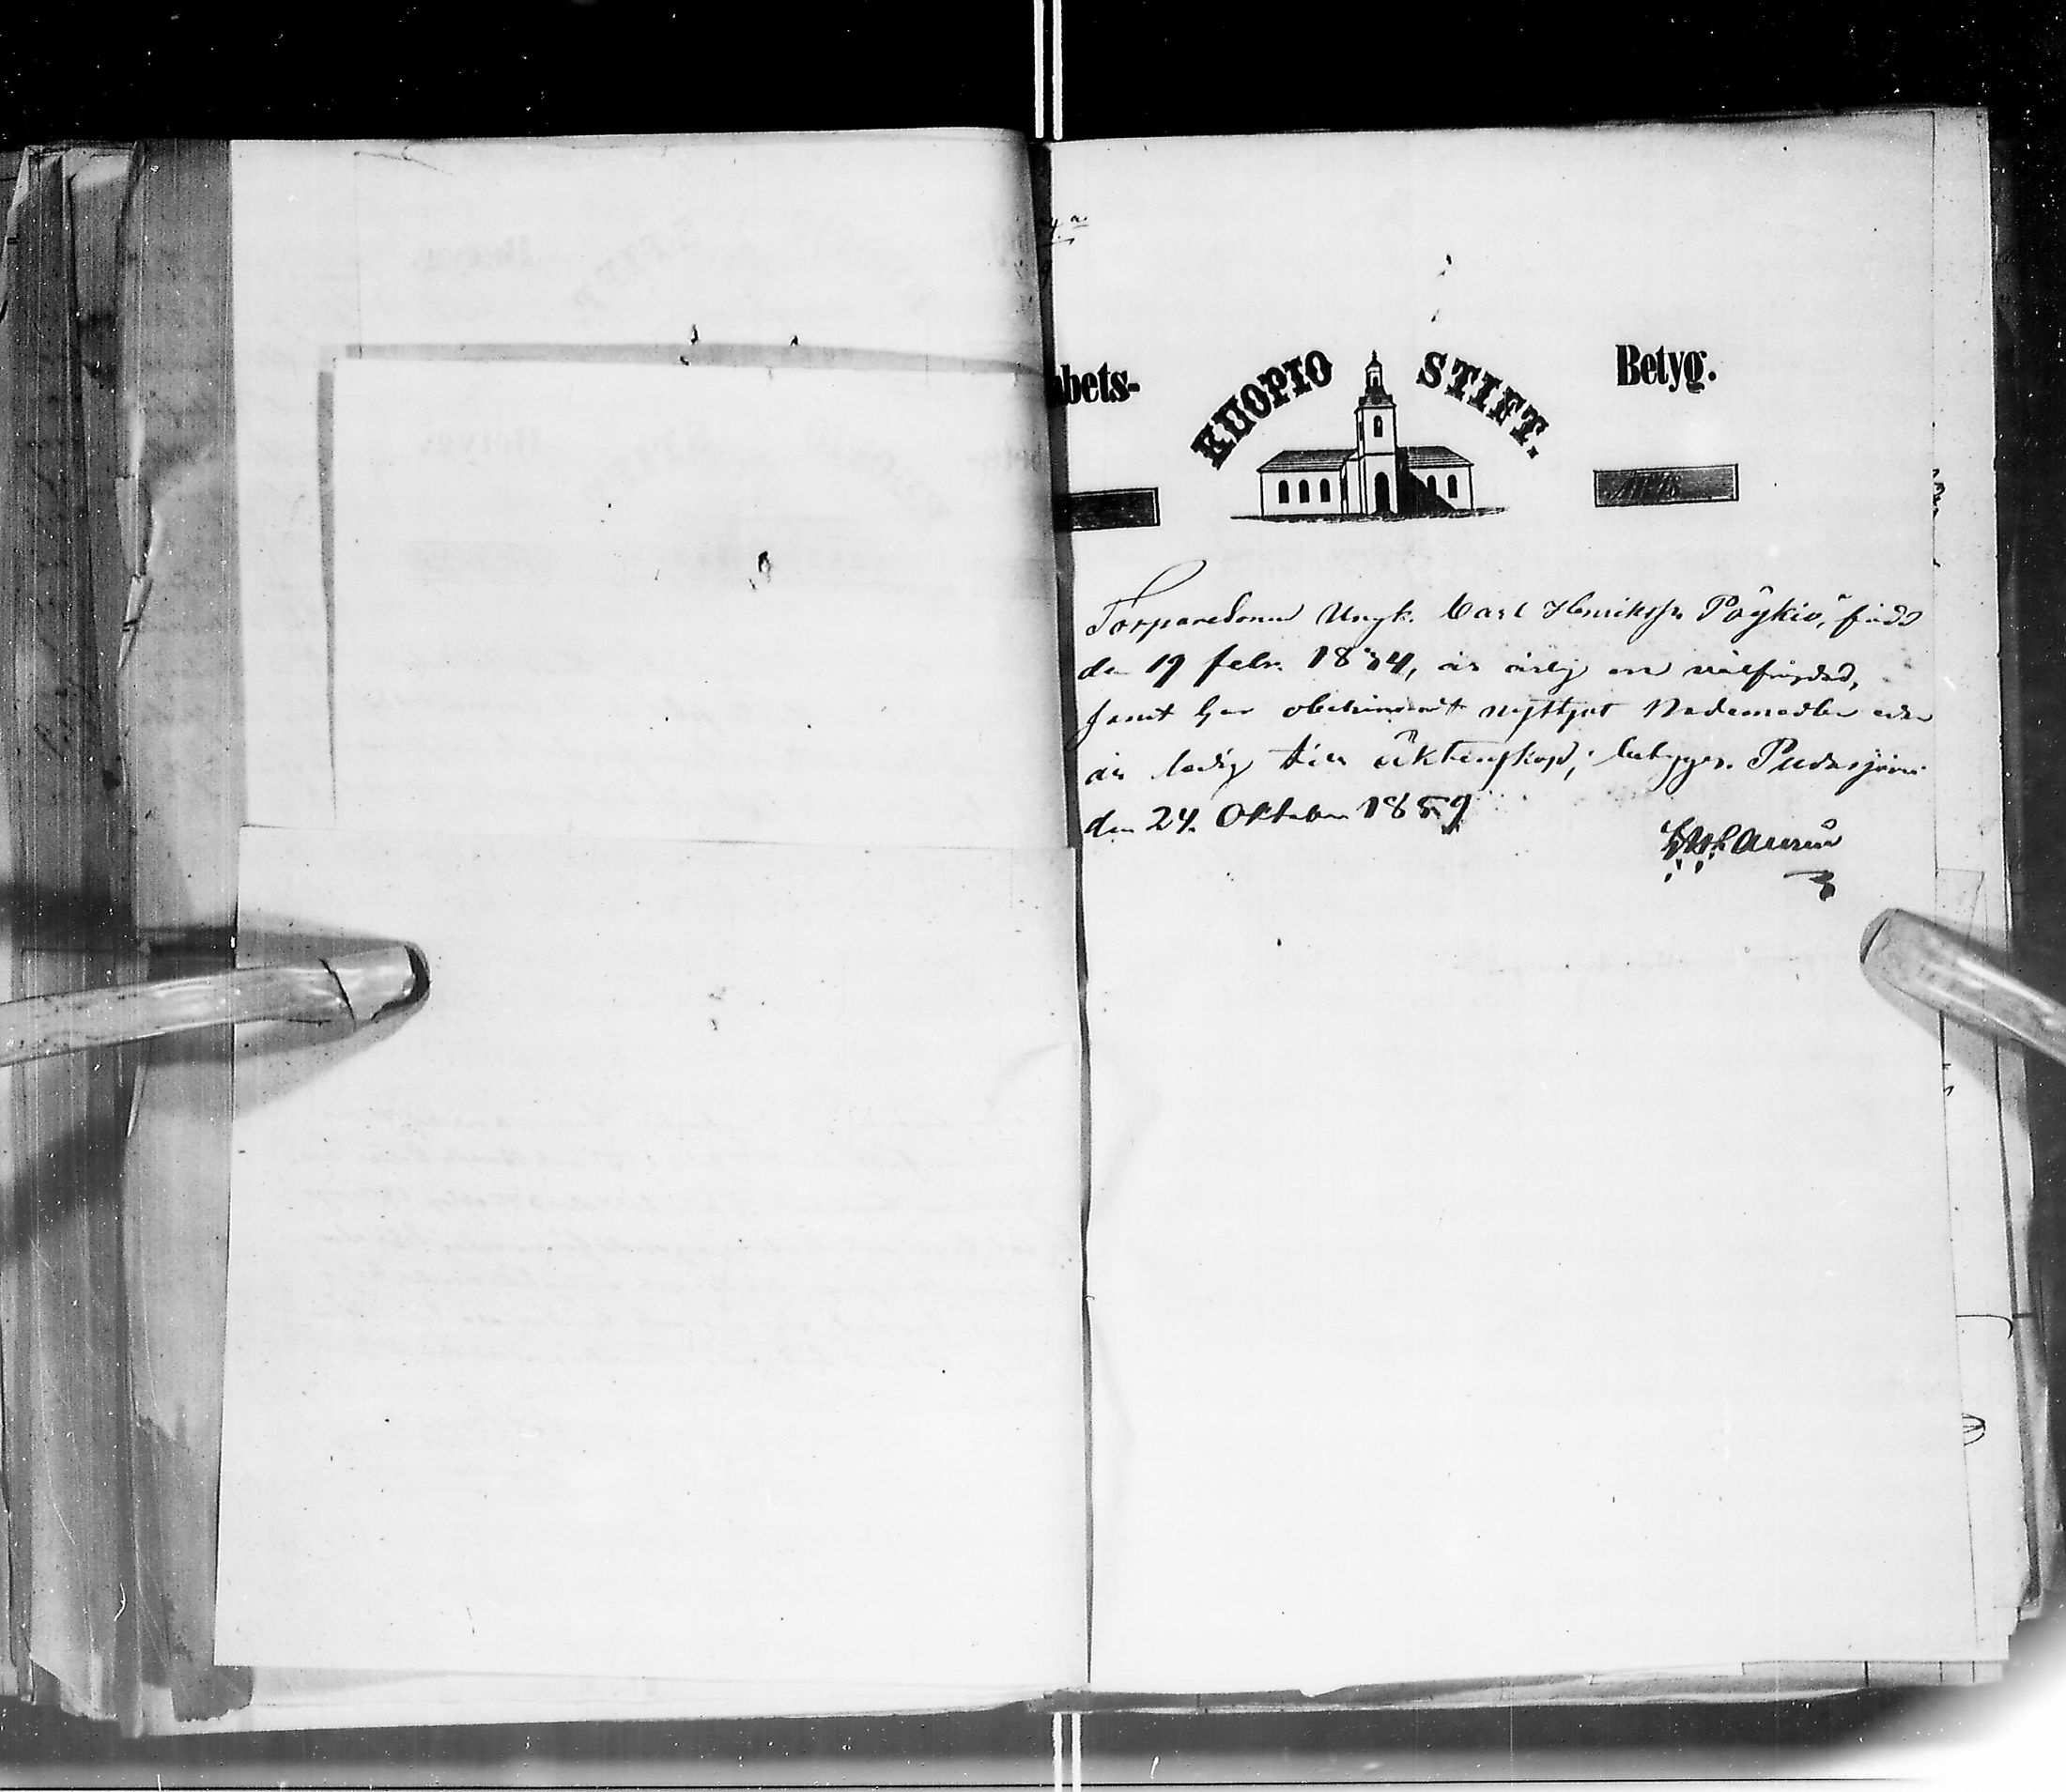 bets-
KUOPIO STIFT.
Betyg.
Torparesonen Ungk. Carl Henriksson Pöykiö, född
den 19 febr. 1834, är ärlig och välfrejdad,
samt har obehindradt nyttjat Nademedlen och
är ledig till äktenskap; betygar. Pudasjärvi
den 24. Oktober 1859